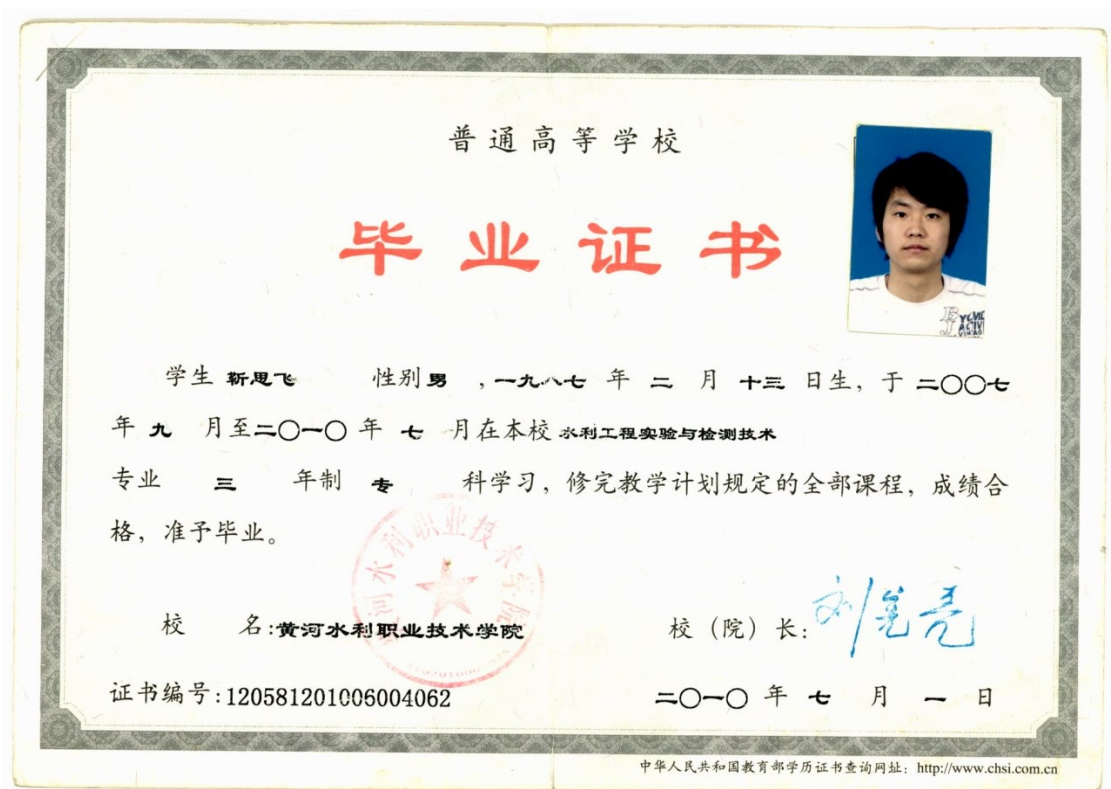 普通高等学校
毕业证书
学生 靳思飞 性别 男 ,一九八七 年 二 月 十三 日生，于 二〇〇七
年 九 月至 二〇一〇 年 七 月在本校 水利工程实验与检测技术
专业 三 年制 专 科学习，修完教学计划规定的全部课程，成绩合
格，准予毕业。
黄河水利职业技术学院
校 名:黄河水利职业技术学院 校（院）长:
证书编号:120581201006004062 二〇一〇 年 七 月 一 日
中华人民共和国教育部学历证书查询网址：http://www.chsi.com.cn